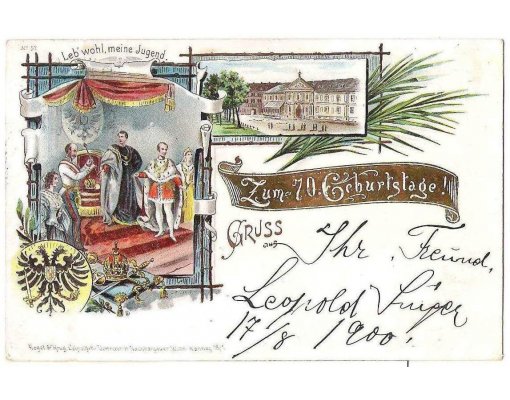 No 52
Leb' wohl, meine Jugend
Zum 70. Geburtstage!
GRUSS
aus
Ihr Freund,
Leopold
17/8 1900.